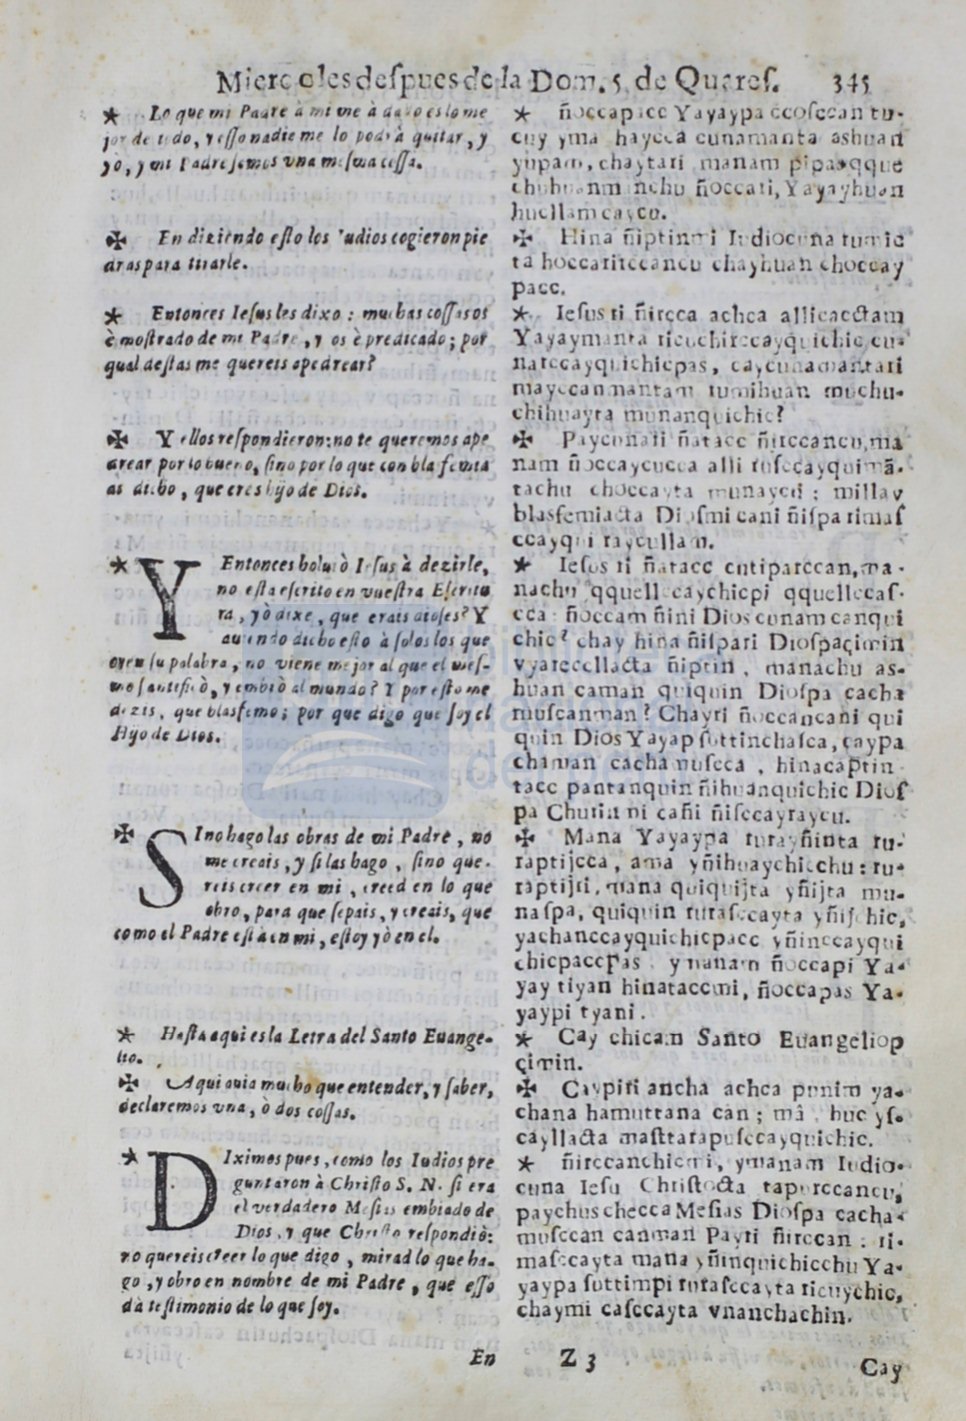 Miercoles despues de la Dom. 5. de Quares. 345
★ Lo que mi Padre à mi me à dado es lo me
jor de todo, y esso nadie me lo podrà quitar, y
yo, y mi Padre somos vna mesma cossa.
✠ En diziendo esto los Iudios cogieron pie
dras para tirarle.
★ Entonces Iesus les dixo : muchas cossas os
è mostrado de mi Padre, y os è predicado; por
qual destas me quereis apedrear?
✠ Y ellos respondieron: no te queremos ape
drear por lo bueno, sino por lo que con blasfemia
as dicho, que eres hijo de Dios.
★ Y Entonces boluiò Iesus à dezirle,
no esta escrito en vuestra Escritu
ra, yò dixe, que erais dioses? Y
auiendo dicho esto à solos los que
oyen su palabra, no viene mejor al que el mes-
mo santificò, y embiò al mundo? Y por esto me
dezis, que blasfemo; por que digo que soy el
Hijo de Dios.
✠ SI no hago las obras de mi Padre, no
me creais, y si las hago, sino que-
reis creer en mi, creed en lo que
obro, para que sepais, y creais, que
como el Padre està en mi, estoy yò en el.
★ Hasta aqui es la Letra del Santo Euange-
lio.
✠ Aqui auia mucho que entender, y saber,
declaremos vna, ò dos cossas.
★ DIximos pues, como los Iudios pre
guntaron à Christo S. N. si era
el verdadero Mesias embiado de
Dios, y que Christo respondiò:
no quereis creer lo que digo, mirad lo que ha-
go, y obro en nombre de mi Padre, que esso
dà testimonio de lo que soy.
En
★ ñoccapacc Yayaypa ccoscean tu-
cuy yma haycca cunamanta ashuan
yupam, chaytari manam pipasqque
chuhuanmanchu ñoccati, Yayayhuan
huellamcaycu.
✠ Hina ñiptinmi Iudiocuna rumic
ta hoccarirccancu chayhuan choccay
pacc.
★ Iesus ri ñircca achca allicacctam
Yayaymanta ricuchirccayquichic cu-
narccayquichicpas, caycunamantari
mayccannantam rumihuan muchu-
chihuayta munanquichic?
✠ Paycunari ñatacc ñirccancu, ma
nam ñoccaycucca alli rusccayquimã-
tachu choccayta munaycu : millay
blasfemiacta Diosmi cani ñispa rimas
ccayqui raycullam.
★ Iesus ri ñatacc cutiparccan, ma-
nachu qquellccaychicpi qquellccas-
cca ñoccam ñini Dios cunam canqui
chic? chay hina ñispari Diospa çimin
vyariccllacta ñiptin, manachu as-
huan caman quiquin Diospa cacha
muscanman? Chayri ñoccancani qui
quin Dios Yayap sottinchasca, caypa
chaman cacha muscca, hinacaptin
tacc pantanquin ñihuanquichic Dios
pa Churin mi cani ñisccayraycu.
✠ Mana Yayaypa rurayñinta ru-
raptijcca, ama yñihuaychicchu : ru-
raptijri, mana quiquijta yñijta mu-
naspa, quiquin rurasccayta yñijchic,
yachanccayquichicpacc yñinccayqui
chicpaccpas. ymanam ñoccapi Ya-
yay tiyan hinataccmi, ñoccapas Ya-
yaypi tyani.
★ Cay chicam Santo Euangeliop
çimin.
✠ Caypiri ancha achca punim ya-
chana hamuttana can; mà, huc ys-
cayllacta mastrarapusccayquichic.
★ ñirccanchicmi, ymanam Iudio-
cuna Iesu Christocta tapurccancu,
paychus checca Mesias Diospa cacha-
musccan canman Payri ñirccan : ri-
masccayta mana yñinquichicchu Ya-
yaypa suttimpi rurasccayta ricuychic,
chaymi casccayta vnanchachin.
Z 3
Cay